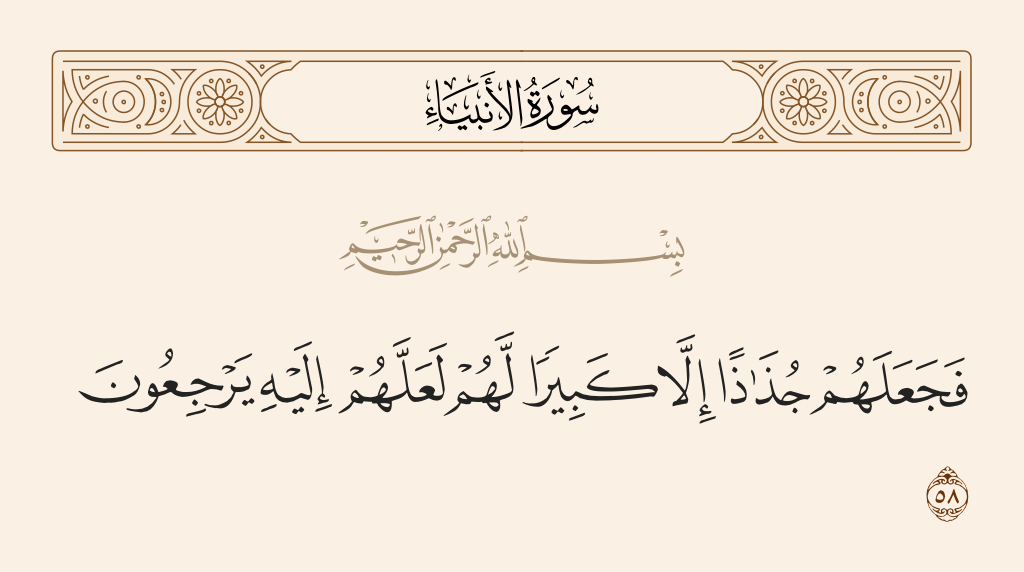 سُورَةُ الأَنبِيَاءِ
بِسْمِ ٱللَّهِ ٱلرَّحْمَٰنِ ٱلرَّحِيمِ
فَجَعَلَهُمْ جُذَٰذًا إِلَّا كَبِيرًا لَّهُمْ لَعَلَّهُمْ إِلَيْهِ يَرْجِعُونَ
٥٨